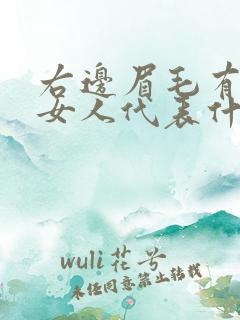 右邊眉毛有
女人代表什
wuli花兮
未经同意禁止转载